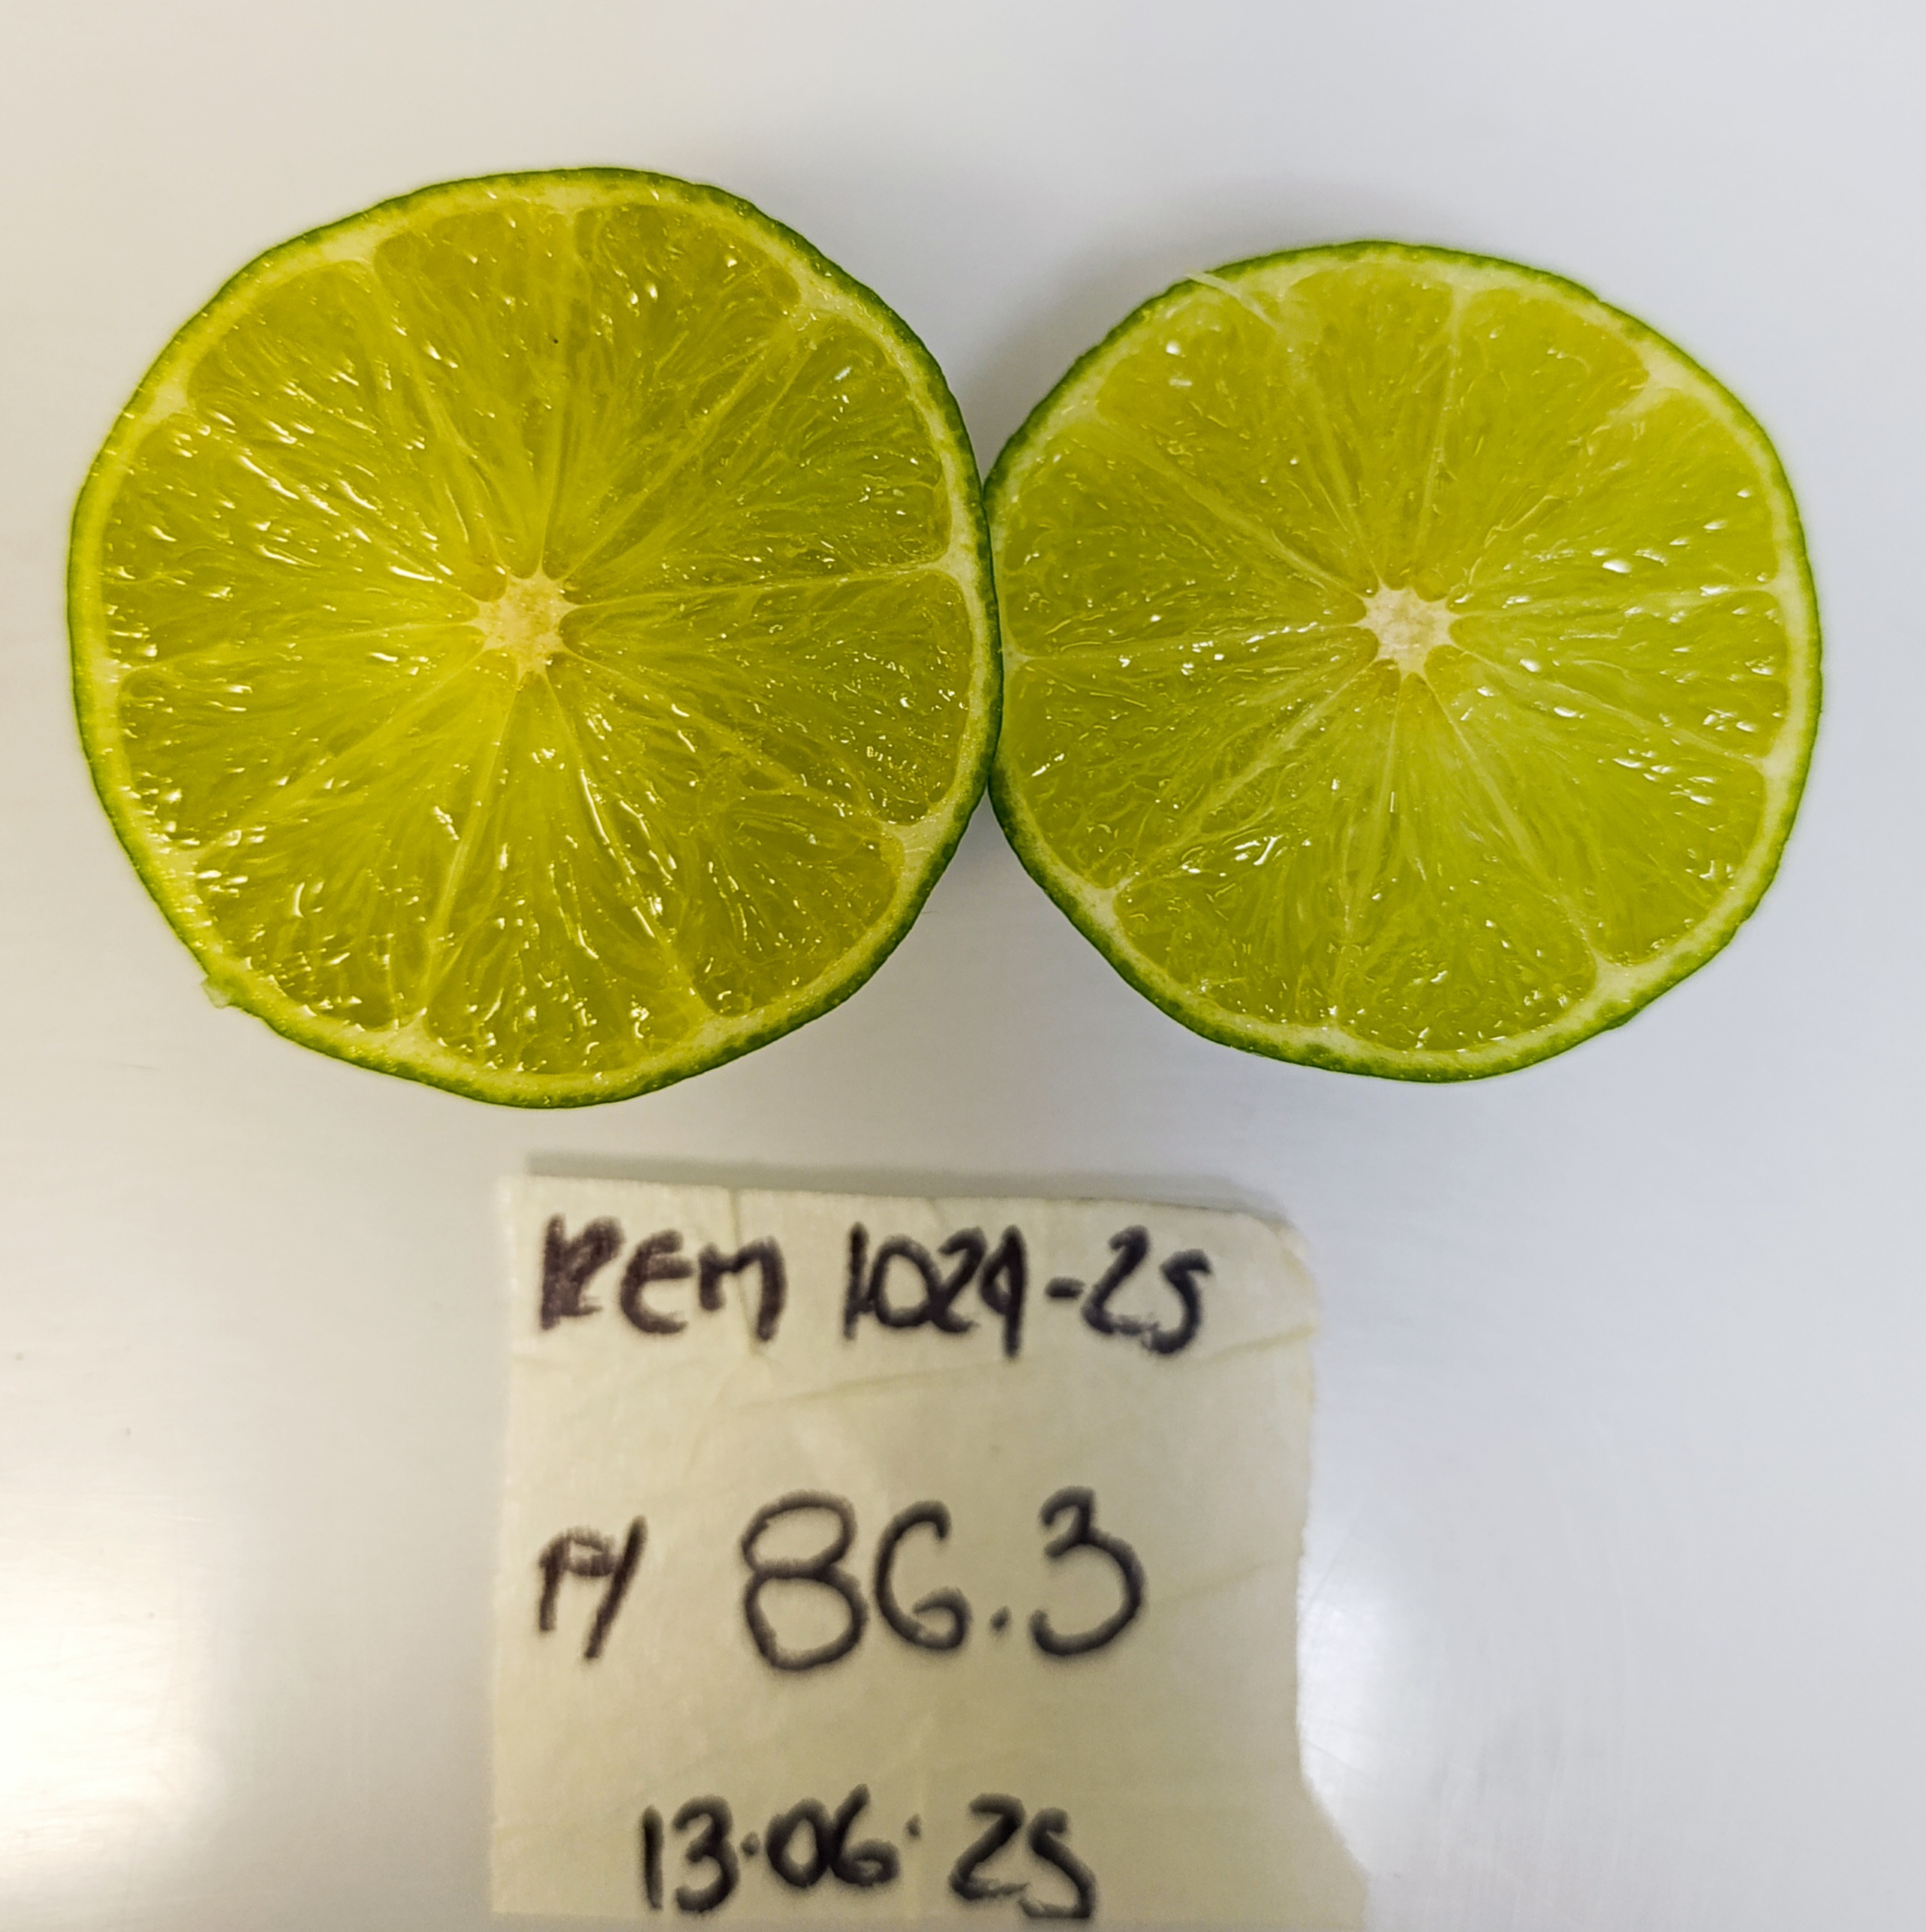 REM 1029-25
P/ 86.3
13.06.25